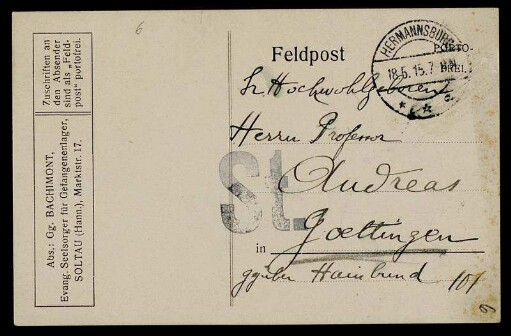 6
Zuschriften an
den Absender
sind als „Feld-
post" portofrei.
Abs.: Gg. BACHIMONT,
Evang. Seelsorger für Gefangenenlager,
SOLTAU (Hann.), Marktstr. 17.
Feldpost
HERMANNSBURG
18.6.15.7
PORTO-
FREI.
Sr. Hochwohlgeboren
Herrn Professor
Andreas
St.
in Goettingen
Hainbund